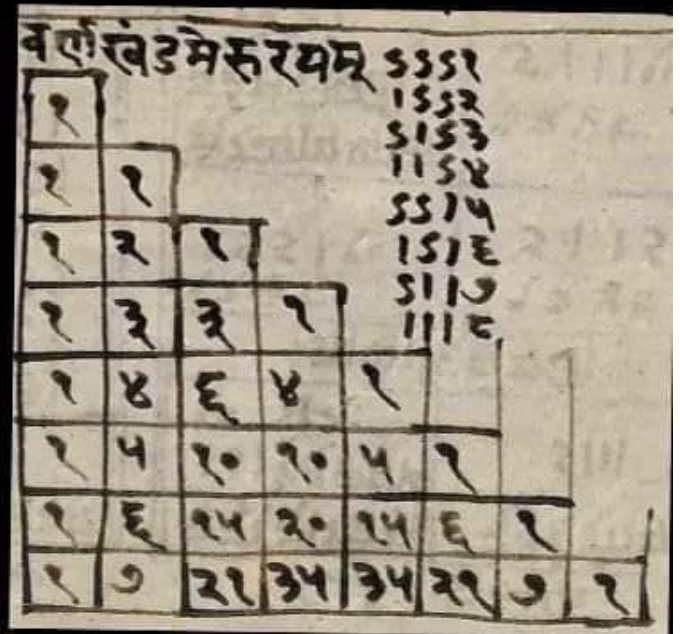 वर्णखंडमेरुरयम्
ऽऽऽ१
।ऽऽ२
ऽ।ऽ३
।।ऽ४
ऽऽ।५
।ऽ।६
ऽ।।७
।।।८
१
१ १
१ २ १
१ ३ ३ १
१ ४ ६ ४ १
१ ५ १० १० ५ १
१ ६ १५ २० १५ ६ १
१ ७ २१ ३५ ३५ २१ ७ १